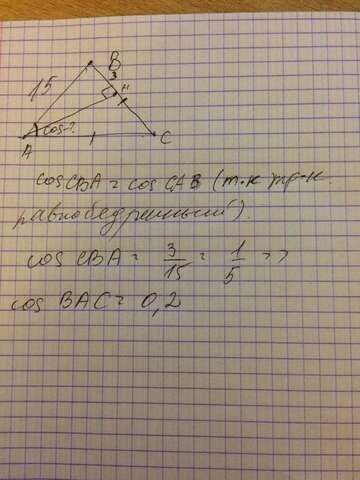 B
3
15
H
cos-?
A
C
cos CBA = cos CAB (т.к тр-к.
равнобедренный).
cos CBA = 3/15 = 1/5 =>
cos BAC = 0,2